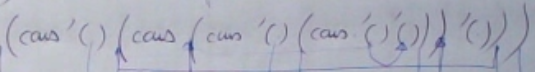 (cons '() (cons (cons '() (cons '() '())) '()))